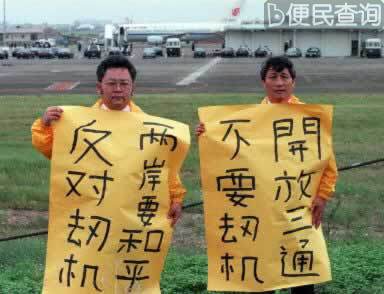 b便民查询
两岸要和平
反对劫机
開放三通
不要劫机